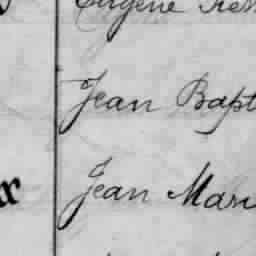 Eugène
Jean Bapt
Jean Mari